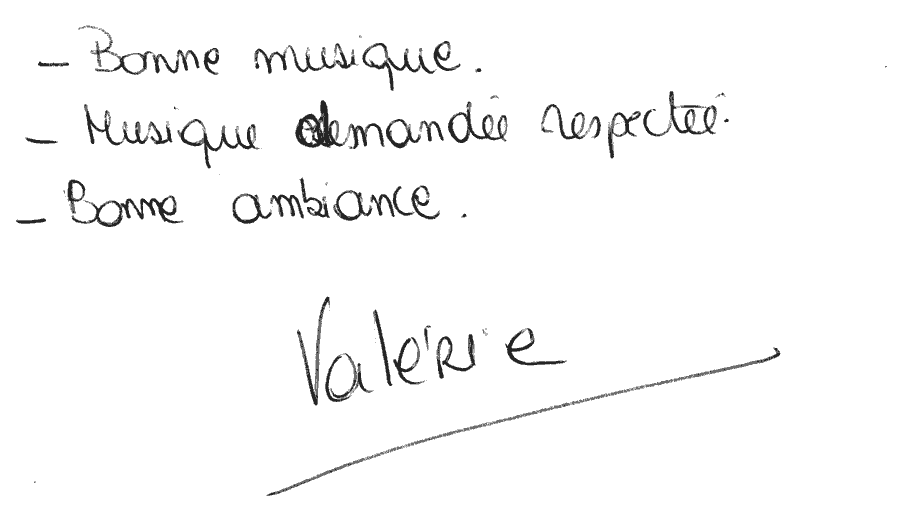 - Bonne musique.
- Musique demandée respectée.
- Bonne ambiance.
Valérie